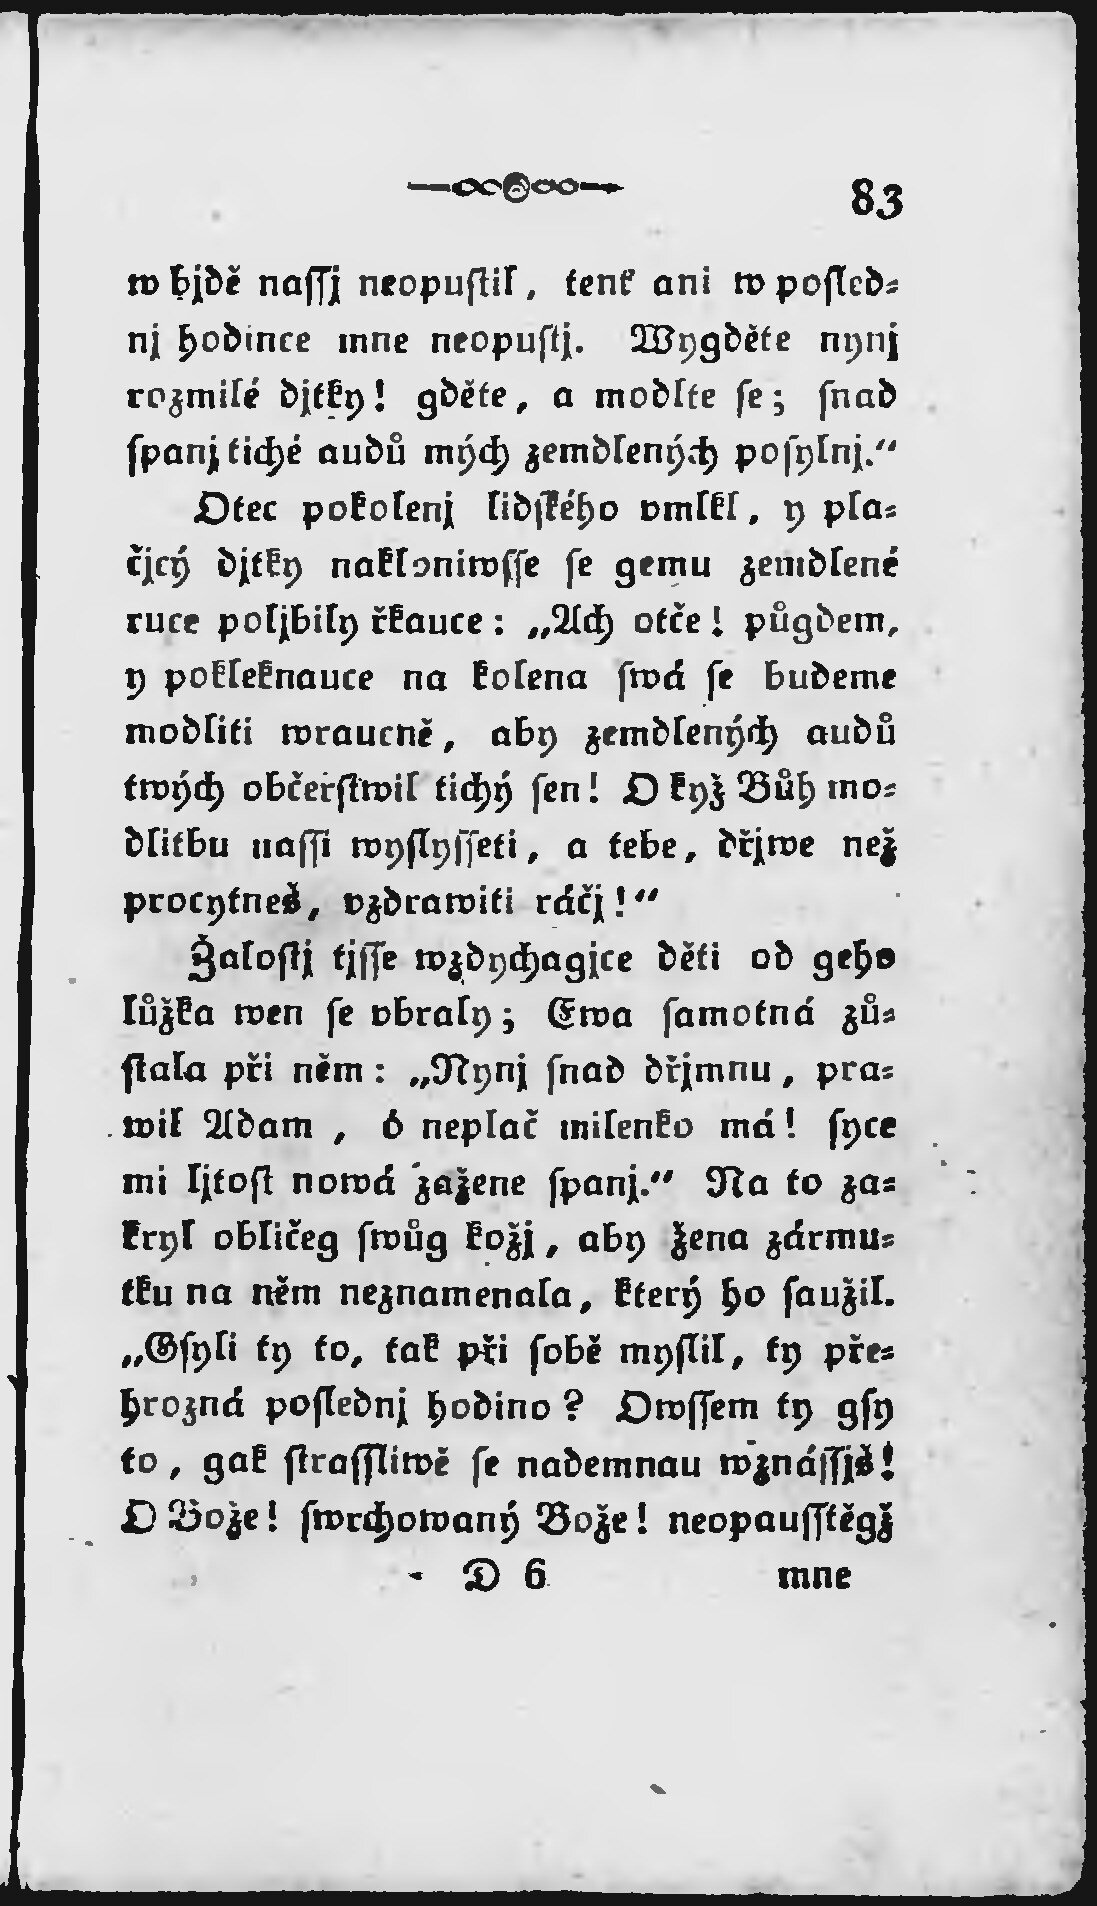 83
w bjdě naſſj neopuſtil, tenť ani w poſled⸗
nj hodince mne neopuſtj. Wygděte nynj
rozmilé djtky! gděte, a modlte ſe; ſnad
ſpanj tiché audů mých zemdlených poſylnj.“
Otec pokolenj lidſkého vmlkl, y pla⸗
čjcý djtky nakloniwſſe ſe gemu zemdlené
ruce poljbily řkauce: „Ach otče! půgdem,
y pokleknauce na kolena ſwá ſe budeme
modliti wraucně, aby zemdlených audů
twých občerſtwil tichý ſen! O kyž Bůh mo⸗
dlitbu naſſi wyſlyſſeti, a tebe, dřjwe než
procytneš, vzdrawiti ráčj!“
Žaloſtj tjſſe wzdychagjce děti od geho
lůžka wen ſe vbraly; Ewa ſamotná zů⸗
ſtala při něm: „Nynj ſnad dřjmnu, pra⸗
wil Adam, ó neplač milenko má! ſyce
mi ljtoſt nowá zažene ſpanj.“ Na to za⸗
kryl obličeg ſwůg kožj, aby žena zármu⸗
tku na něm neznamenala, který ho ſaužil.
„Gſyli ty to, tak při ſobě myſlil, ty pře⸗
hrozná poſlednj hodino? Owſſem ty gſy
to, gak ſtraſſliwě ſe nademnau wznáſſjš!
O Bože! ſwrchowaný Bože! neopauſſtěgž
D 6 mne